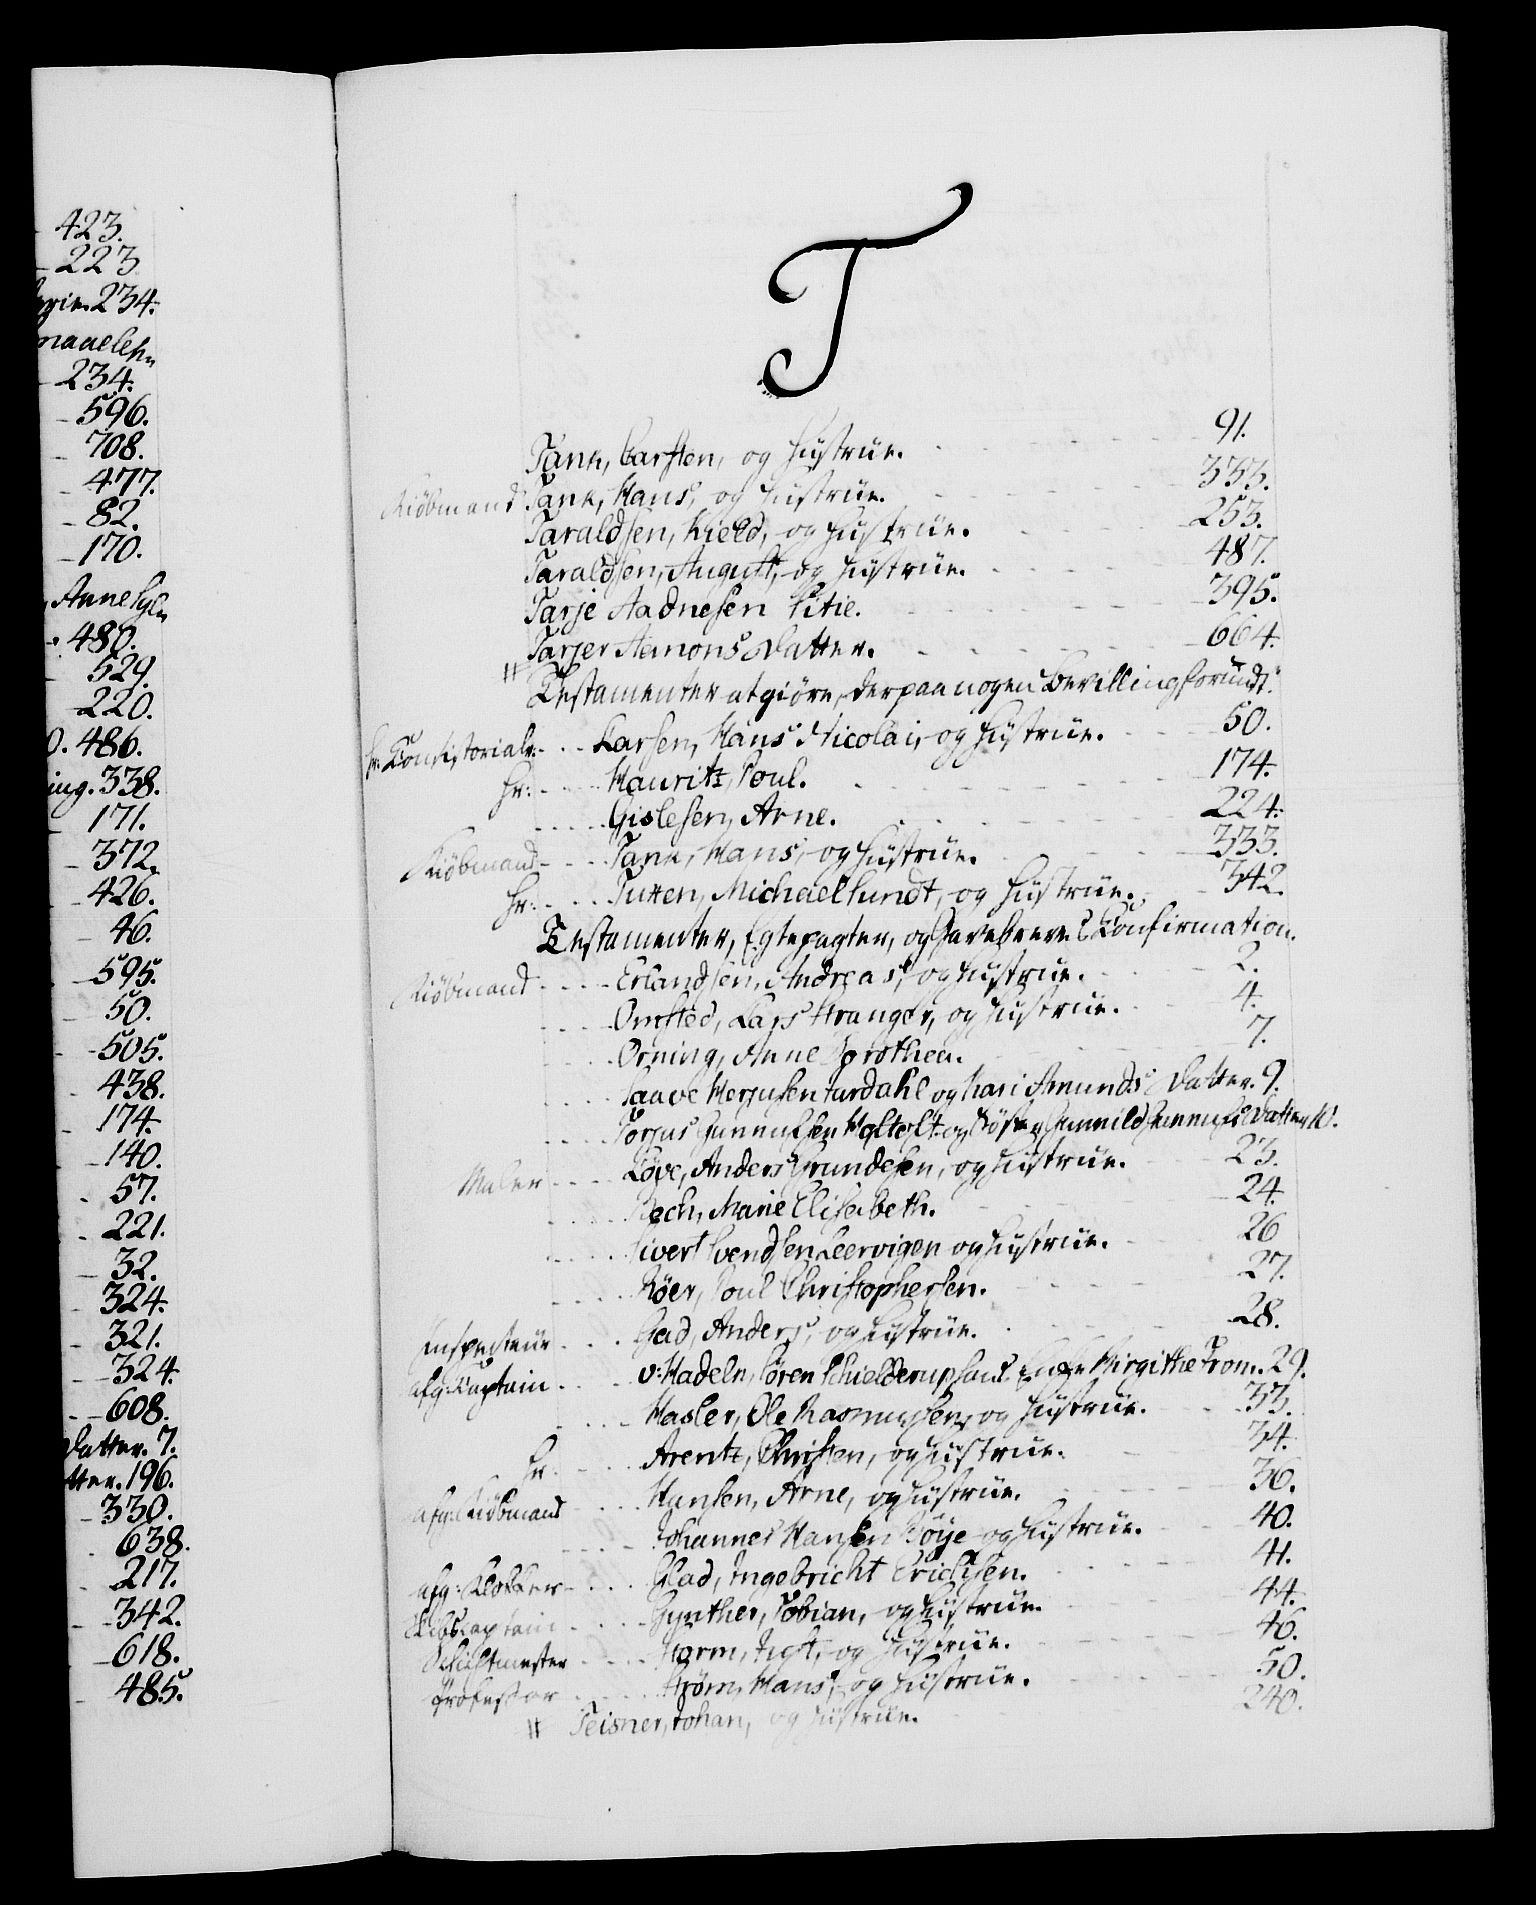 423.
223
234.
234.
596.
708.
477.
82.
170.
Anne
480.
529.
220.
486.
338.
171.
372.
426.
46.
595.
50.
505.
438.
174.
140.
57.
221.
32.
324.
321.
324.
608.
Datter. 7.
tter. 196.
330.
638.
217.
342.
618.
485.
T
Tank, Carsten, og Hustrue. 91.
Kiöbmand Tank, Hans, og Hustrue. 333.
Taraldsen, Kield, og Hustrue. 253.
Taraldsen, August, og Hustrue. 487.
Tarje Aadnesen 395.
Tarjer Aamons Datter. 664.
Testamenter at giöre, derpaa nogen Bevilling forundt.
Hr. Consistorialr. Larsen, Hans Nicolai, og Hustrue. 50.
Hr: Mauritz, Poul. 174.
Gislesen, Arne. 224.
Kiöbmand Tank, Hans, og Hustrue. 333.
Hr: Tuxen, Michael Lundt, og Hustrue. 342.
Testamenter, Egtepagter, og Gavebreve Confirmation.
Kiöbmand Erlandsen, Andreas, og Hustrue. 2.
Omsted, Lars Stranger, og Hustrue. 4.
Orning, Anne Dorothea. 7.
Saave og Kari Amunds Datter. 9.
Torjus Gunnulsen og Söster Gunnild Gunnuls Datter 10.
Maler Löve, Anders Trundesen, og Hustrue. 23.
Bech, Marie Elisabeth. 24.
Sivert Svendsen Leervigen og Hustrue. 26
Röer, Poul Christophersen. 27.
Inspecteur Gad, Anders, og Hustrue. 28.
afg: Kaptain v: Hadeln, Sören Schielderups Enke Birgithe From. 29.
Hasler, Ole Rasmussen, og Hustrue. 33.
Hr. Arentz, Christen, og Hustrue. 34.
afg: Kiöbmand Hansen, Arne, og Hustrue. 36.
Johannes Hansen Böye og Hustrue. 40.
afg: Klokker Glad, Ingebricht Erichsen. 41.
Skibscaptain Gynther, Tobian, og Hustrue. 44.
Schichtmester Storm, Just, og Hustrue. 46.
Professor Ström, Hans, og Hustrue. 50.
Teisner, Johan, og Hustrue. 240.